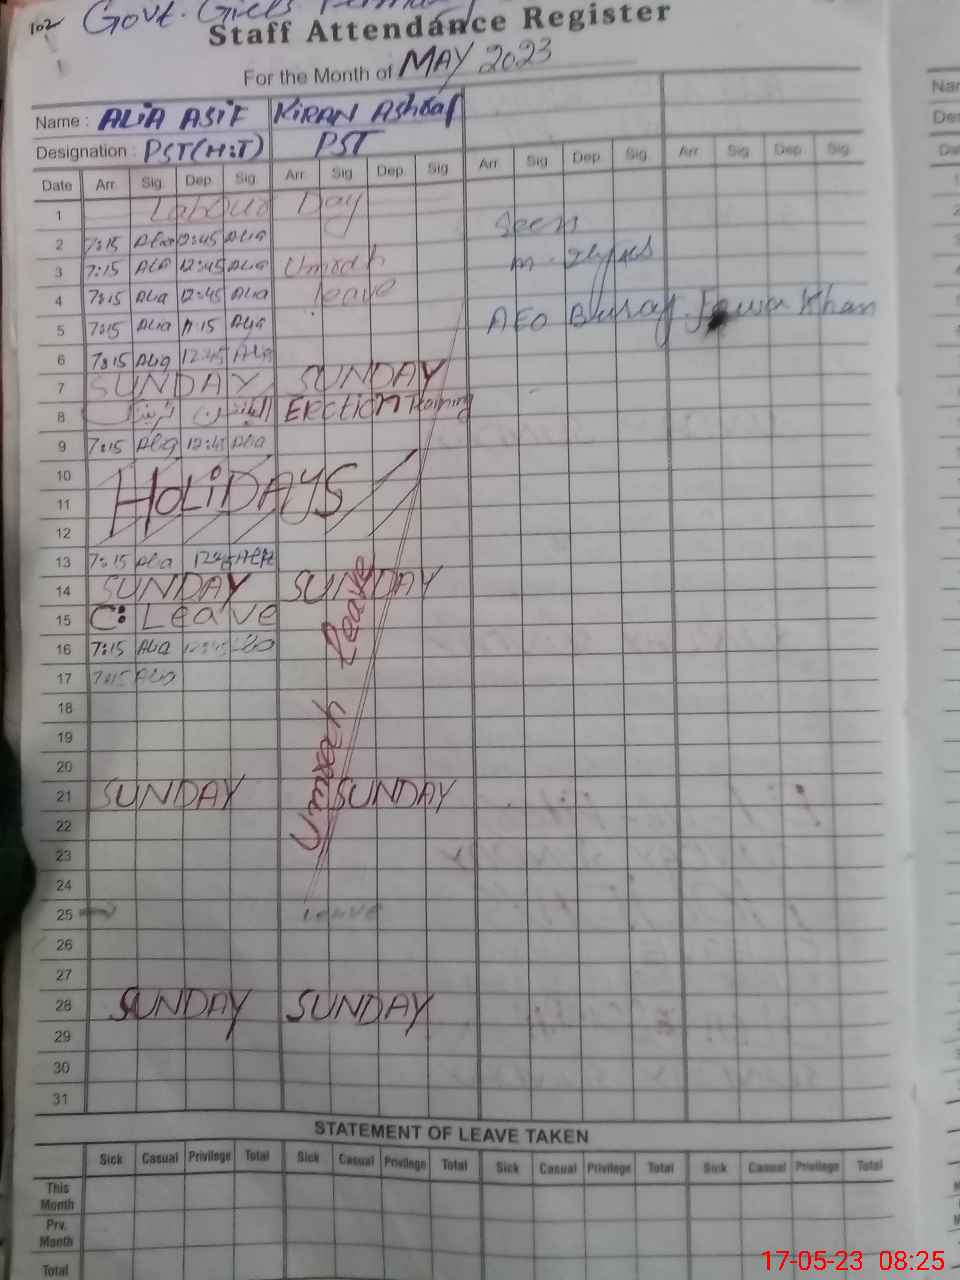 102 Govt. Girls
Staff Attendance Register
For the Month of MAY 2023
Name : ALiA ASiF KiRAN Ashraf
Designation : PST(H:T) PST
Date Arr. Sig. Dep. Sig. Arr. Sig Dep. Sig Arr. Sig Dep. Sig. Arr. Sig Dep. Sig.
1 Labour Day
2 7:15 Alia 12:45 ALiA Seen
3 7:15 ALiA 12:45 ALiA Umrah
4 7:15 ALiA 12:45 ALiA leave
5 7:15 ALiA 11:15 ALiA AEO Khan
6 7:15 ALiA 12:45 ALiA
7 SUNDAY SUNDAY
8 الیکشن ٹریننگ Election Training
9 7:15 ALiA 12:45 ALiA
10
11 HOLiDAYS
12
13 7:15 ALiA 12:45 ALiA
14 SUNDAY SUNDAY
15 C: Leave
16 7:15 ALiA 12:45
17 7:15 ALiA
18
19
20
21 SUNDAY SUNDAY
22
23
24
25 LEAVE
26
27
28 SUNDAY SUNDAY
29
30
31
Umrah leave
STATEMENT OF LEAVE TAKEN
Sick Casual Privilege Total Sick Casual Privilege Total Sick Casual Privilege Total Sick Casual Privilege Total
This Month
Prv. Month
Total
17-05-23 08:25